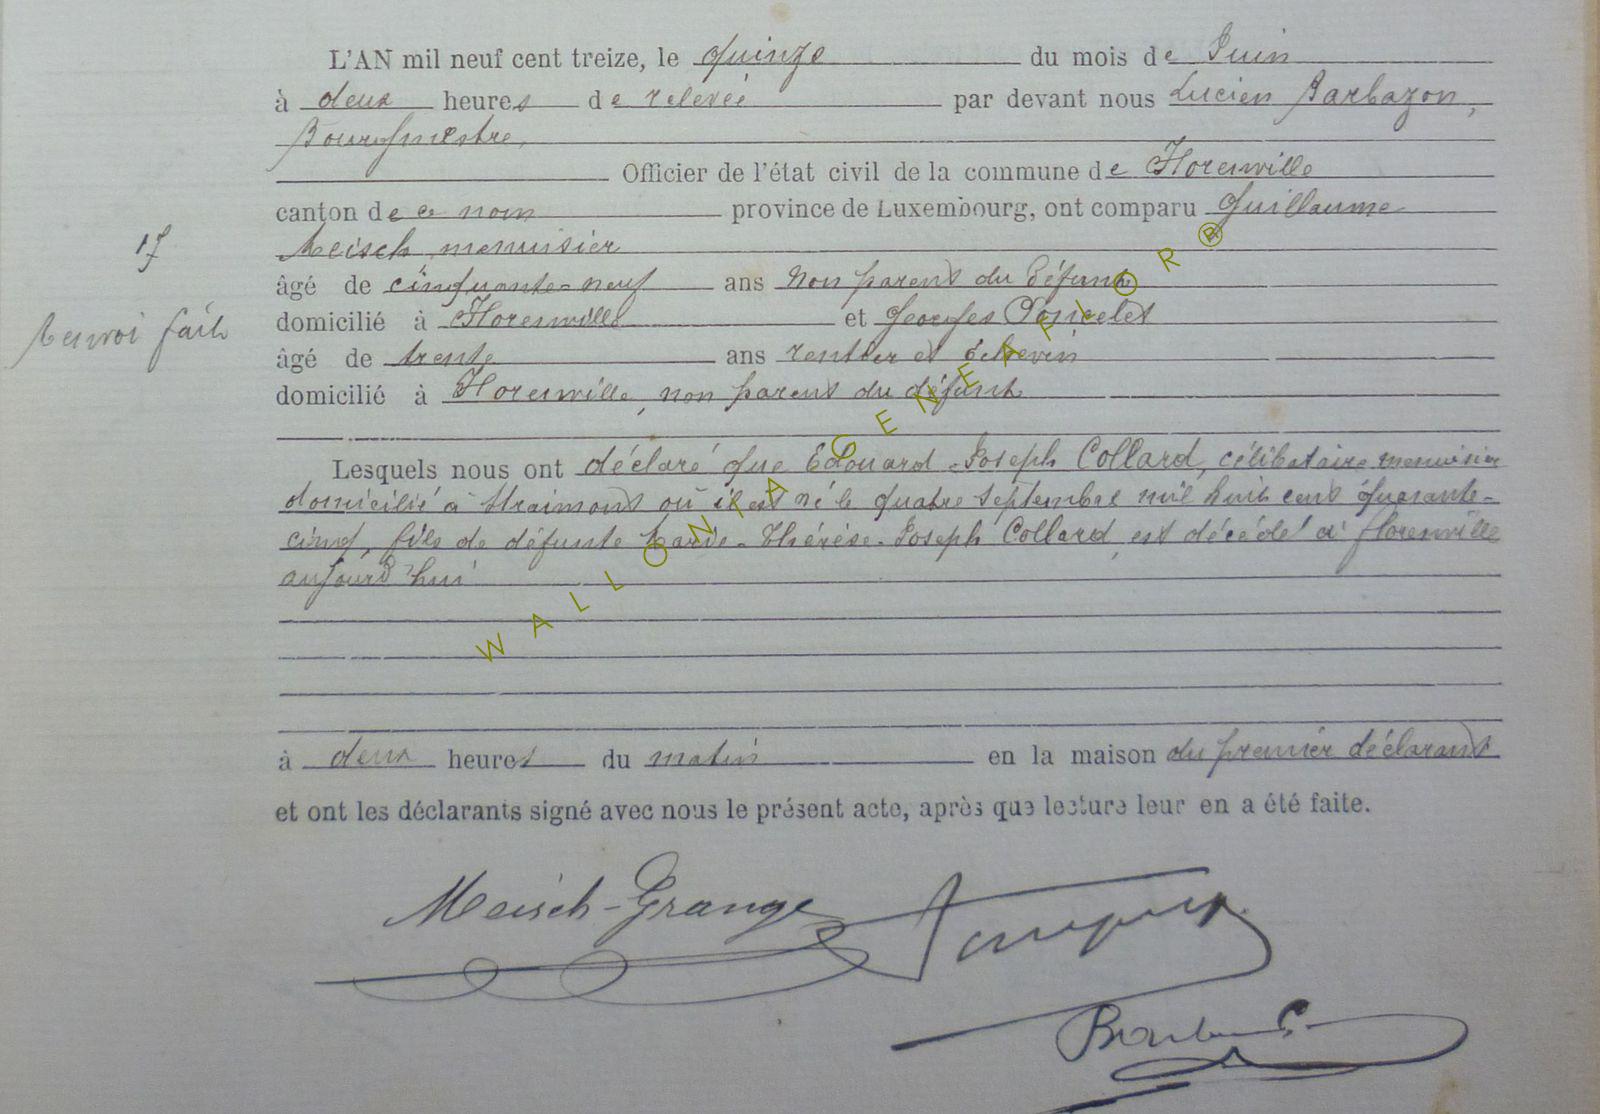 L'AN mil neuf cent treize, le quinze du mois de Juin
à deux heures de relevée par devant nous Lucien Barbazon,
Bourgmestre,
Officier de l'état civil de la commune de Florenville
canton de ce nom province de Luxembourg, ont comparu Guillaume
Meisch menuisier
17
âgé de cinquante-neuf ans non parent du défunt
Renvoi fait
domicilié à Florenville et Georges Poncelet
âgé de trente ans rentier et échevin
domicilié à Florenville, non parent du défunt
Lesquels nous ont déclaré que Edouard-Joseph Collard, célibataire menuisier
domicilié à Straimont où il est né le quatre septembre mil huit cent quarante-
cinq, fils de défunte Marie-Thérèse-Joseph Collard, est décédé à Florenville
aujourd'hui
à deux heures du matin en la maison du premier déclarant
et ont les déclarants signé avec nous le présent acte, après que lecture leur en a été faite.
Meisch-Grange
WALLONIA GENEAFLOR®